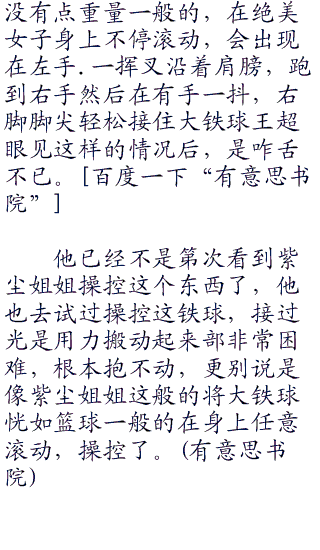 没有点重量一般的，在绝美
女子身上不停滚动，会出现
在左手.一挥叉沿着肩膀，跑
到右手然后在有手一抖，右
脚脚尖轻松接住大铁球王超
眼见这样的情况后，是咋舌
不已。[百度一下“有意思书
院”]
他已经不是第次看到紫
尘姐姐操控这个东西了，他
也去试过操控这铁球，接过
光是用力搬动起来部非常困
难，根本抱不动，更别说是
像紫尘姐姐这般的将大铁球
恍如篮球一般的在身上任意
滚动，操控了。(有意思书
院)